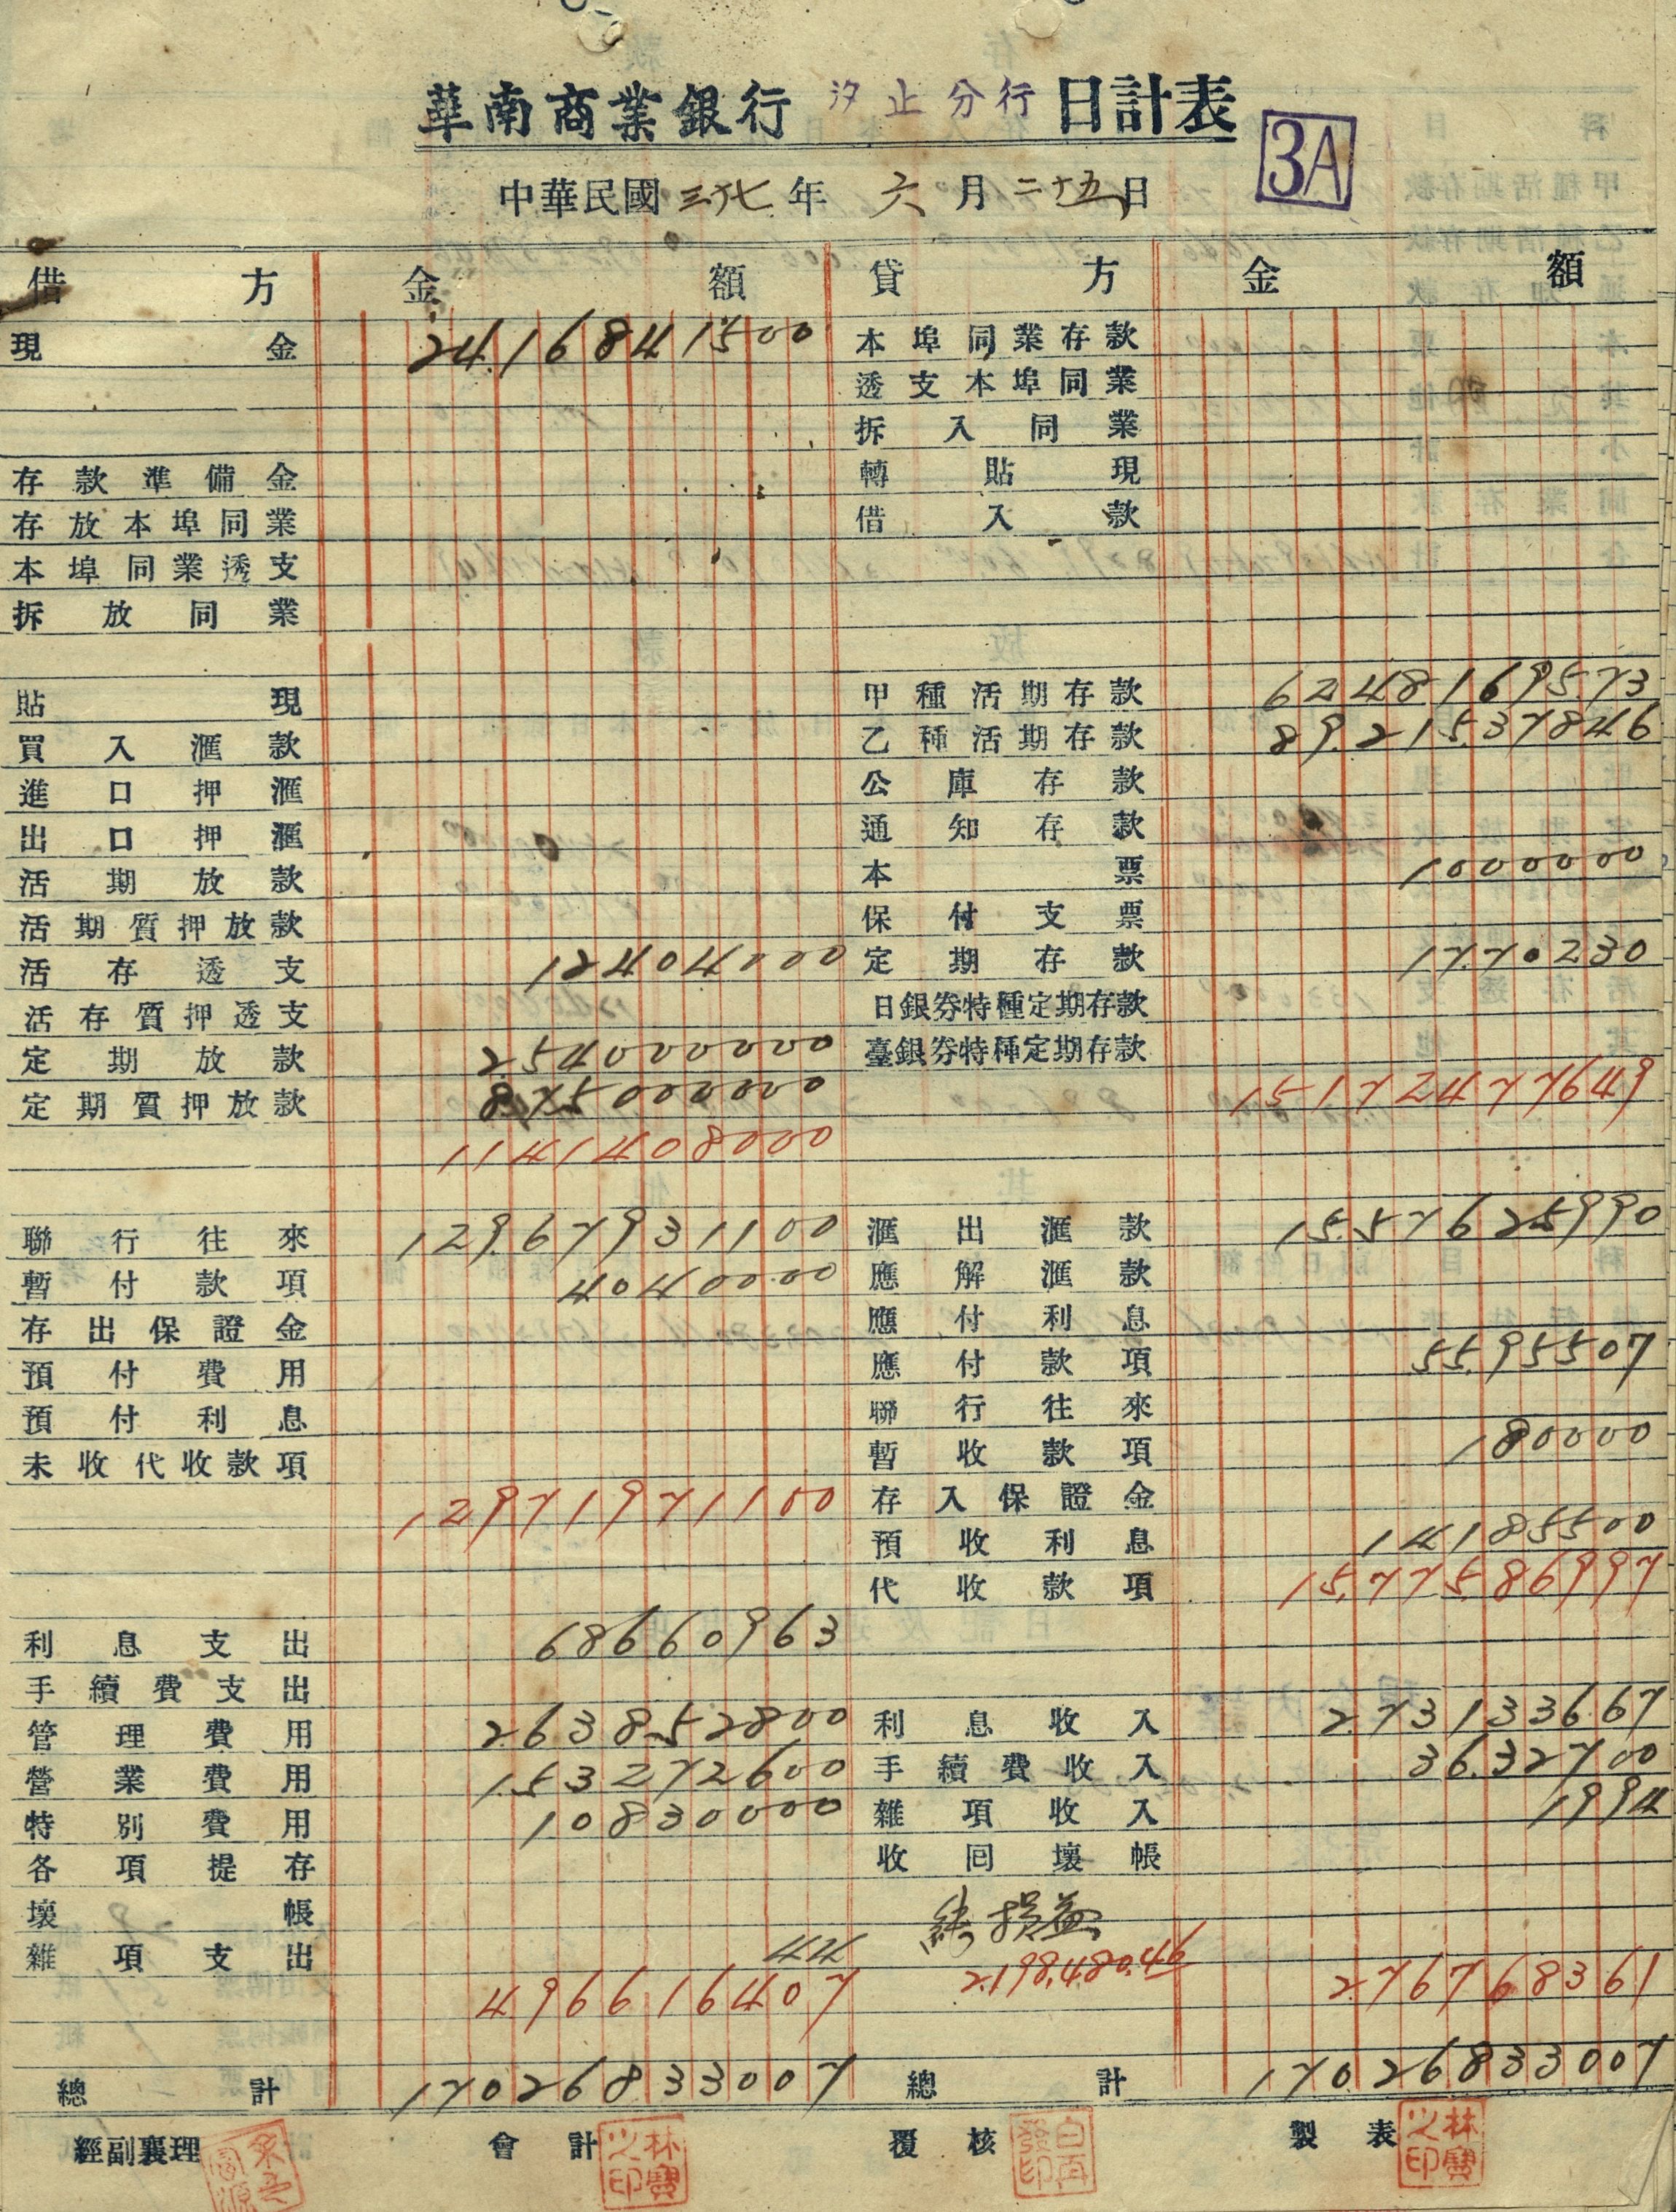 華南商業銀行 汐止分行 日計表
3A
中華民國 三十七 年 六 月 二十五 日
借方 金額 貸方 金額
現金 24.16841500 本埠同業存款
透支本埠同業
拆入同業
存款準備金 轉貼現
存放本埠同業 借入款
本埠同業透支
拆放同業
貼現 甲種活期存款 6248169573
買入滙款 乙種活期存款 89.215.37846
進口押滙 公庫存款
出口押滙 通知存款
活期放款 本票 1000000
活期質押放款 保付支票
活存透支 12404000 定期存款 17.70230
活存質押透支 日銀券特種定期存款
定期放款 2.54000000 臺銀券特種定期存款
定期質押放款 875000000 15172477649
1141404000
聯行往來 129.67931100 滙出滙款 15.57625990
暫付款項 4040000 應解滙款
存出保證金 應付利息
預付費用 應付款項 55.95507
預付利息 聯行往來
未收代收款項 暫收款項 180000
12971971100 存入保證金
預收利息 14185500
代收款項 15.775.86997
利息支出 68660963
手續費支出
管理費用 2.63852800 利息收入 2.73133667
營業費用 1.53272600 手續費收入 36.32700
特別費用 10830000 雜項收入 1994
各項提存 收回壞帳
壞帳 純損益
雜項支出 44 2.198.480.46
496616407 276768361
總計 17026833007 總計 170.26833007
經副襄理 會計 林寶之印 覆核 製表 林寶之印